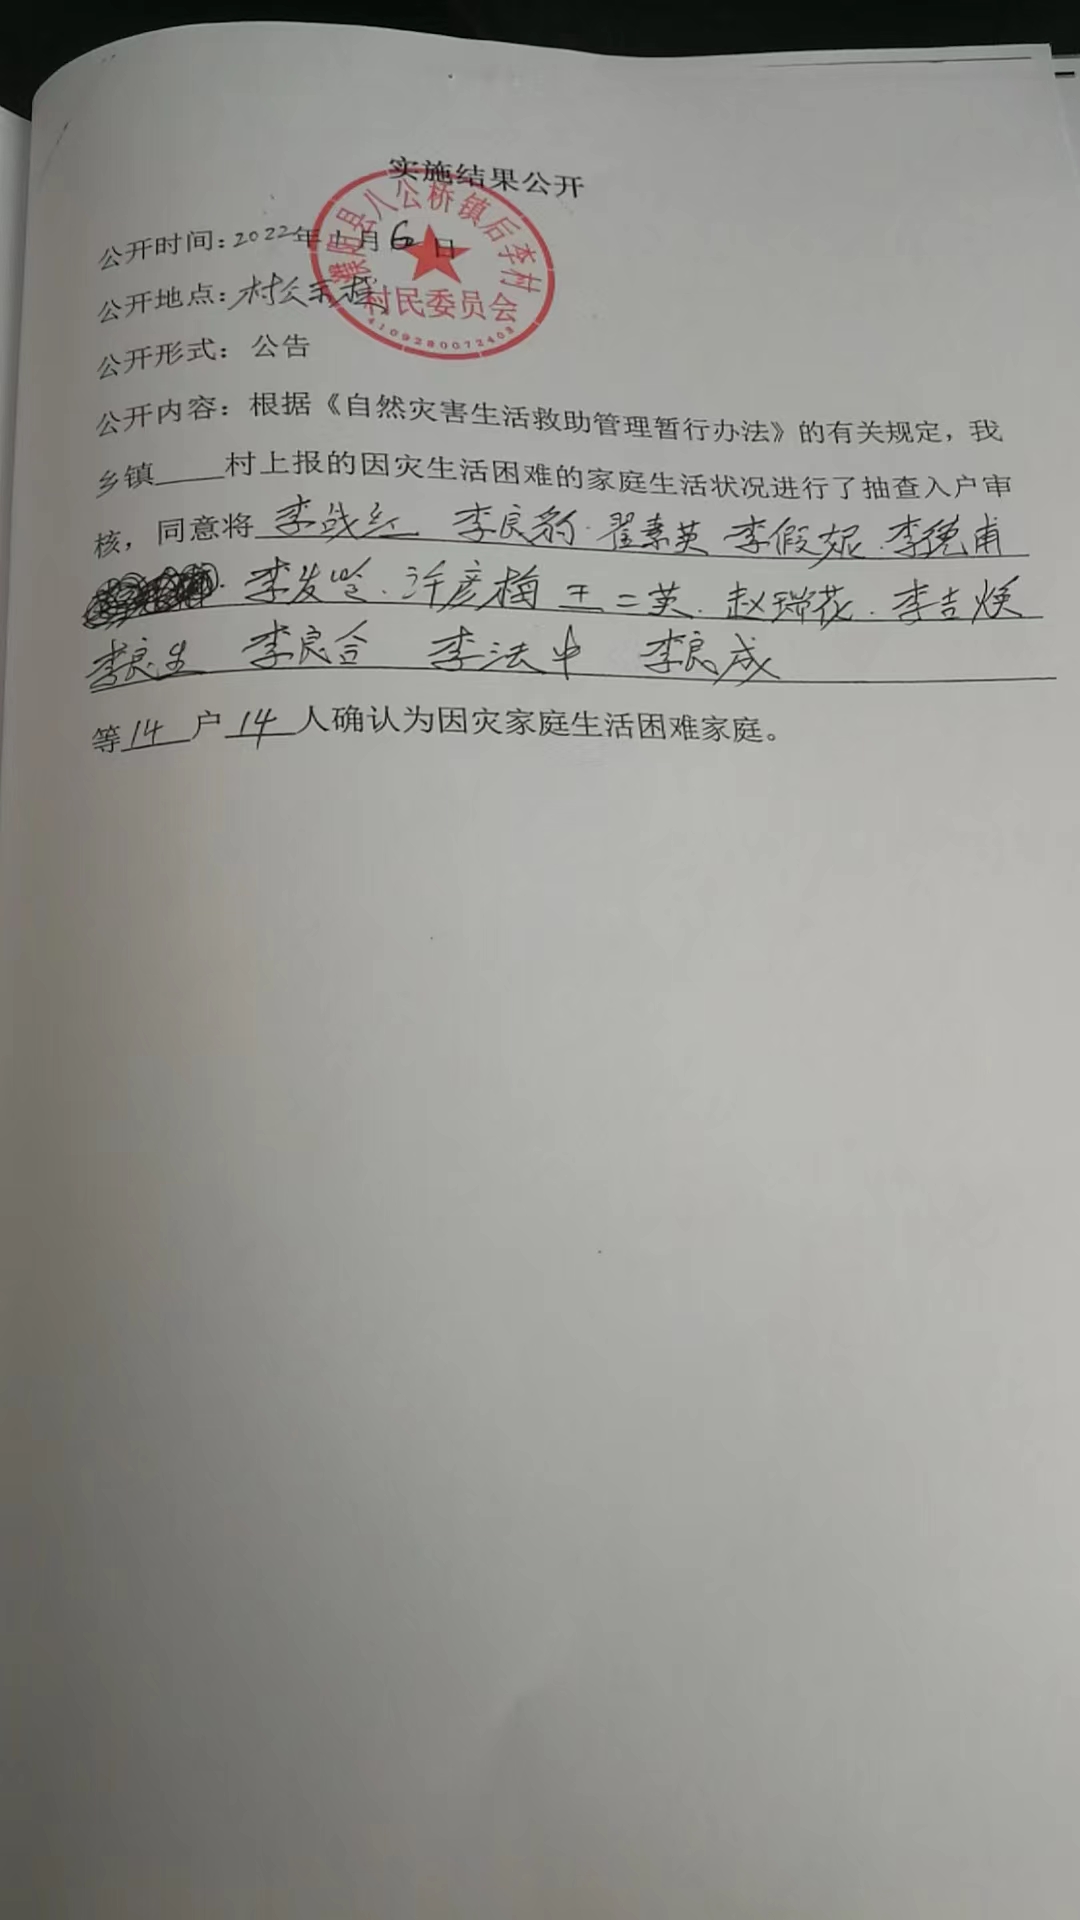 实施结果公开
濮阳县八公桥镇后李村
村民委员会
4109280072403
公开时间：2022年1月6日
公开地点：村公示栏
公开形式：公告
公开内容：根据《自然灾害生活救助管理暂行办法》的有关规定，我
乡镇____村上报的因灾生活困难的家庭生活状况进行了抽查入户审
核，同意将 李战红 李良豹 翟素英 李假妮 李德甫
李发岭 许彦梅 王二英 赵瑞花 李吉焕
李良生 李良合 李法中 李良成
等14户14人确认为因灾家庭生活困难家庭。